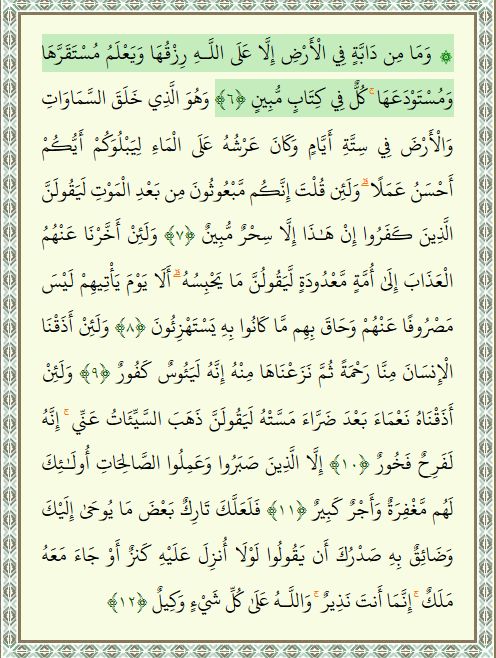 ۞ وَمَا مِن دَابَّةٍ فِي الْأَرْضِ إِلَّا عَلَى اللَّـهِ رِزْقُهَا وَيَعْلَمُ مُسْتَقَرَّهَا
وَمُسْتَوْدَعَهَا ۚ كُلٌّ فِي كِتَابٍ مُّبِينٍ ﴿٦﴾ وَهُوَ الَّذِي خَلَقَ السَّمَاوَاتِ
وَالْأَرْضَ فِي سِتَّةِ أَيَّامٍ وَكَانَ عَرْشُهُ عَلَى الْمَاءِ لِيَبْلُوَكُمْ أَيُّكُمْ
أَحْسَنُ عَمَلًا ۗ وَلَئِن قُلْتَ إِنَّكُم مَّبْعُوثُونَ مِن بَعْدِ الْمَوْتِ لَيَقُولَنَّ
الَّذِينَ كَفَرُوا إِنْ هَـٰذَا إِلَّا سِحْرٌ مُّبِينٌ ﴿٧﴾ وَلَئِنْ أَخَّرْنَا عَنْهُمُ
الْعَذَابَ إِلَىٰ أُمَّةٍ مَّعْدُودَةٍ لَّيَقُولُنَّ مَا يَحْبِسُهُ ۗ أَلَا يَوْمَ يَأْتِيهِمْ لَيْسَ
مَصْرُوفًا عَنْهُمْ وَحَاقَ بِهِم مَّا كَانُوا بِهِ يَسْتَهْزِئُونَ ﴿٨﴾ وَلَئِنْ أَذَقْنَا
الْإِنسَانَ مِنَّا رَحْمَةً ثُمَّ نَزَعْنَاهَا مِنْهُ إِنَّهُ لَيَئُوسٌ كَفُورٌ ﴿٩﴾ وَلَئِنْ
أَذَقْنَاهُ نَعْمَاءَ بَعْدَ ضَرَّاءَ مَسَّتْهُ لَيَقُولَنَّ ذَهَبَ السَّيِّئَاتُ عَنِّي ۚ إِنَّهُ
لَفَرِحٌ فَخُورٌ ﴿١٠﴾ إِلَّا الَّذِينَ صَبَرُوا وَعَمِلُوا الصَّالِحَاتِ أُولَـٰئِكَ
لَهُم مَّغْفِرَةٌ وَأَجْرٌ كَبِيرٌ ﴿١١﴾ فَلَعَلَّكَ تَارِكٌ بَعْضَ مَا يُوحَىٰ إِلَيْكَ
وَضَائِقٌ بِهِ صَدْرُكَ أَن يَقُولُوا لَوْلَا أُنزِلَ عَلَيْهِ كَنزٌ أَوْ جَاءَ مَعَهُ
مَلَكٌ ۚ إِنَّمَا أَنتَ نَذِيرٌ ۚ وَاللَّـهُ عَلَىٰ كُلِّ شَيْءٍ وَكِيلٌ ﴿١٢﴾